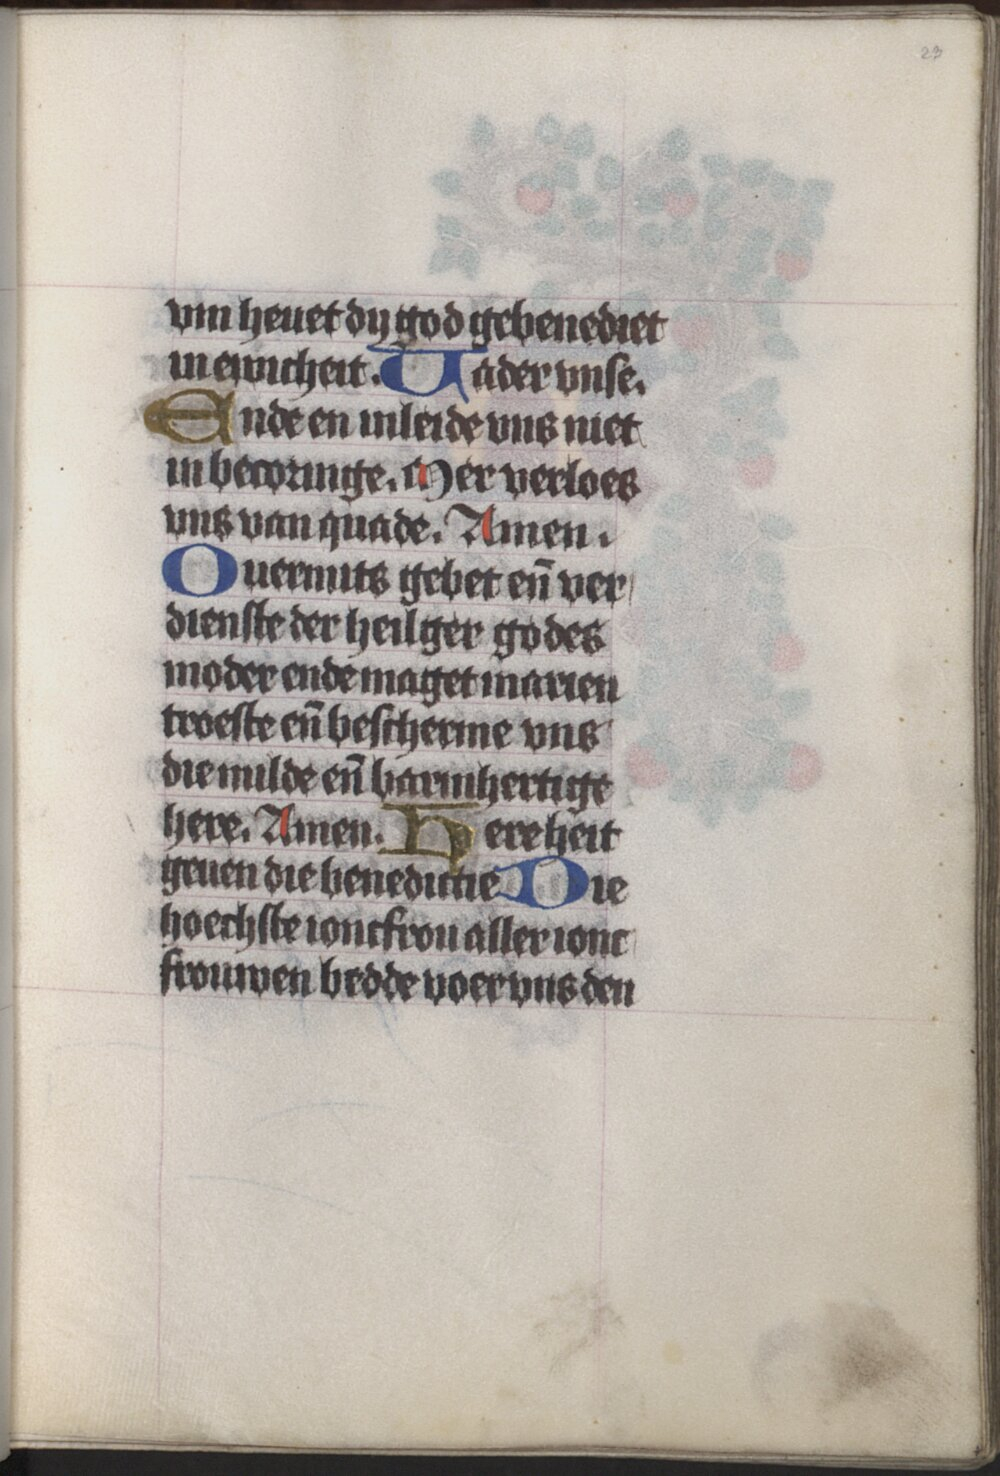 23
vm heuet dy god gebenediet
in ewicheit. Uader vnse.
Ende en inleide vns niet
in becoringe. Mer verloes
vns van quade. Amen.
Ouermits gebet en̄ ver
dienste der heilger godes
moder ende maget marien
troeste en̄ bescherme vns
die milde en̄ barmhertige
here. Amen. Here heit
geuen die benedictie Die
hoechste ioncfrou aller ionc
frouwen bedde voer vns den